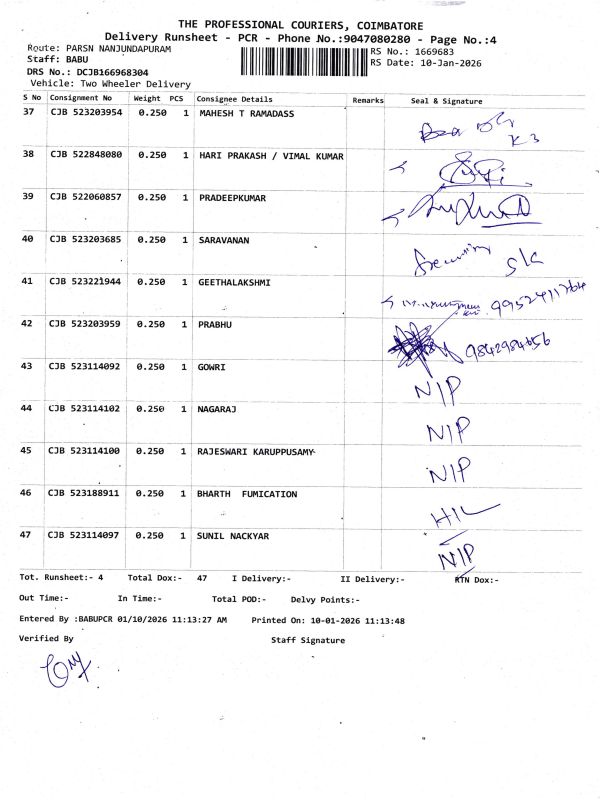 THE PROFESSIONAL COURIERS, COIMBATORE
Delivery Runsheet - PCR - Phone No.:9047080280 - Page No.:4
Route: PARSN NANJUNDAPURAM
RS No.: 1669683
Staff: BABU
RS Date: 10-Jan-2026
DRS No.: DCJB166968304
Vehicle: Two Wheeler Delivery
S No Consignment No Weight PCS Consignee Details Remarks Seal & Signature
37 CJB 523203954 0.250 1 MAHESH T RAMADASS
K3
38 CJB 522848080 0.250 1 HARI PRAKASH / VIMAL KUMAR
39 CJB 522060857 0.250 1 PRADEEPKUMAR
40 CJB 523203685 0.250 1 SARAVANAN
41 CJB 523221944 0.250 1 GEETHALAKSHMI
42 CJB 523203959 0.250 1 PRABHU
9842984656
43 CJB 523114092 0.250 1 GOWRI
NIP
44 CJB 523114102 0.250 1 NAGARAJ
NIP
45 CJB 523114100 0.250 1 RAJESWARI KARUPPUSAMY
NIP
46 CJB 523188911 0.250 1 BHARTH FUMICATION
HIL
47 CJB 523114097 0.250 1 SUNIL NACKYAR
NIP
Tot. Runsheet:- 4 Total Dox:- 47 I Delivery:- II Delivery:- RTN Dox:-
Out Time:- In Time:- Total POD:- Delvy Points:-
Entered By :BABUPCR 01/10/2026 11:13:27 AM Printed On: 10-01-2026 11:13:48
Verified By Staff Signature